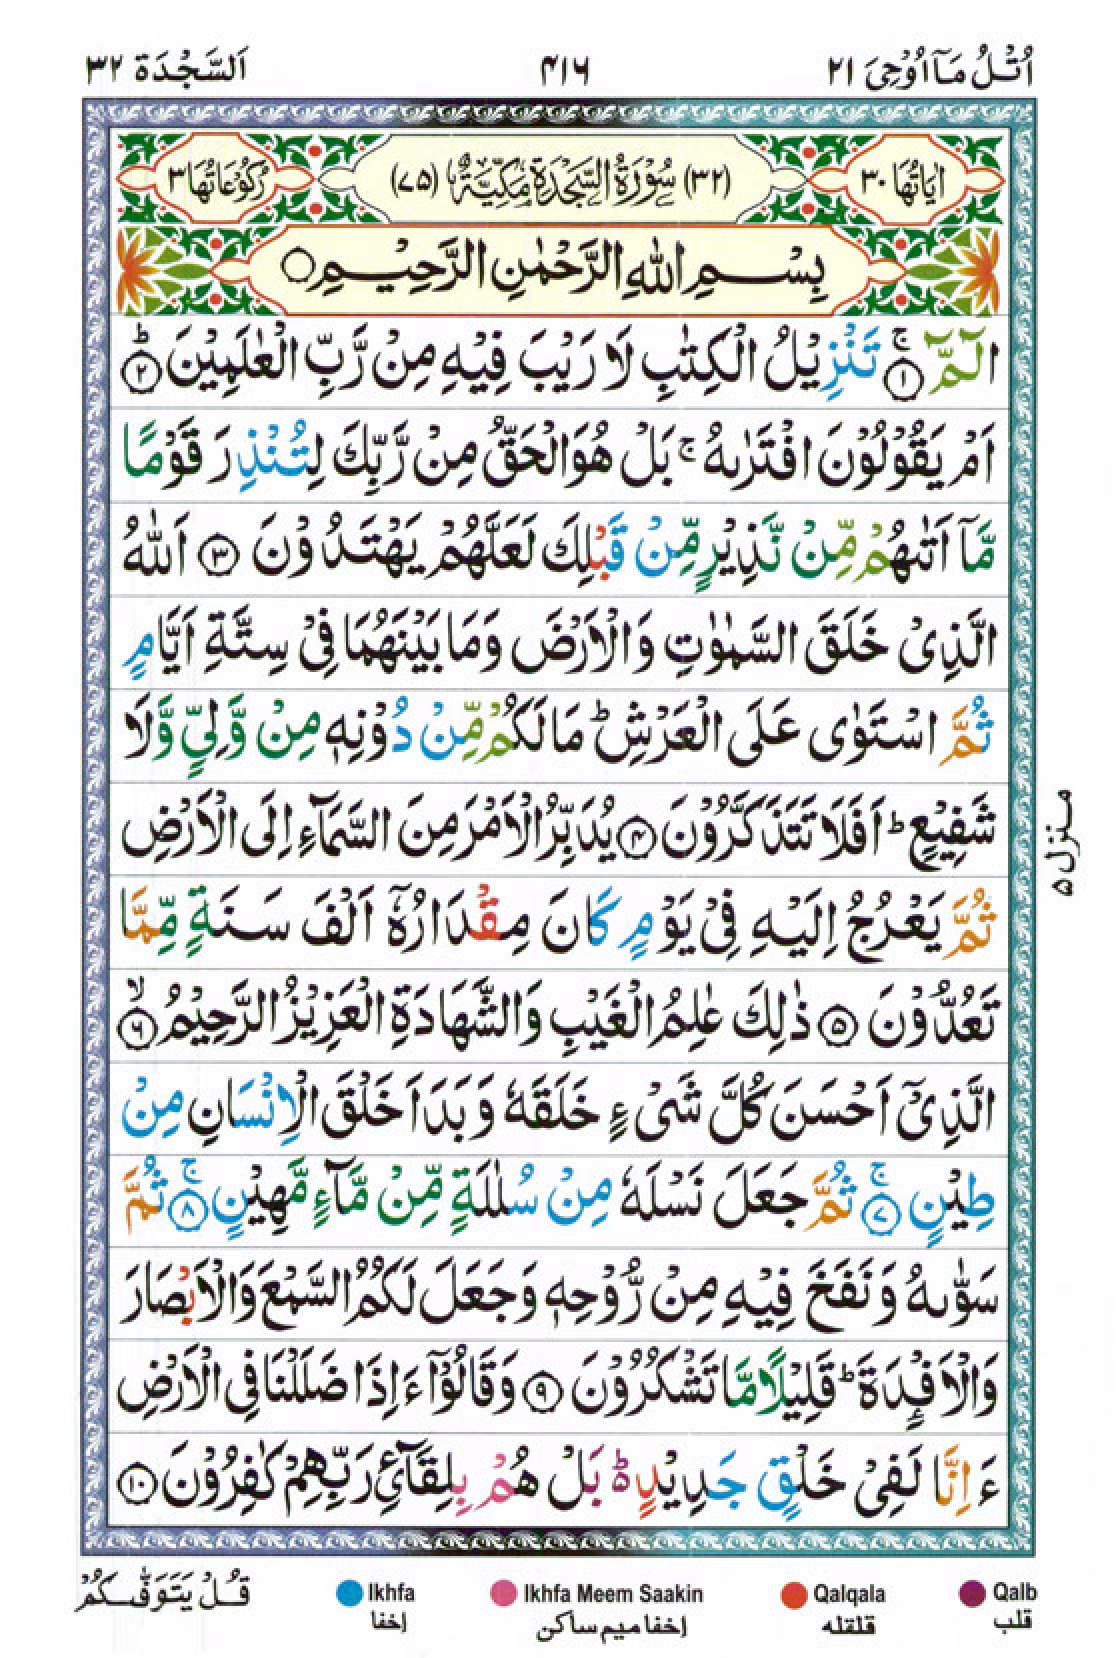 اُتْلُ مَآ اُوْحِیَ ۲۱
۴۱۶
اَلسَّجْدَة ۳۲
اٰیَاتُهَا ۳۰
(۳۲) سُوْرَةُ السَّجْدَةِ مَكِّیَّةٌ (۷۵)
رُكُوْعَاتُهَا ۳
بِسْمِ اللّٰهِ الرَّحْمٰنِ الرَّحِیْمِ ۝
الٓمّٓ ۚ‏﴿۱﴾ تَنْزِیْلُ الْكِتٰبِ لَا رَیْبَ فِیْهِ مِنْ رَّبِّ الْعٰلَمِیْنَ ؕ‏﴿۲﴾
اَمْ یَقُوْلُوْنَ افْتَرٰىهُ ۚ بَلْ هُوَ الْحَقُّ مِنْ رَّبِّكَ لِتُنْذِرَ قَوْمًا
مَّاۤ اَتٰىهُمْ مِّنْ نَّذِیْرٍ مِّنْ قَبْلِكَ لَعَلَّهُمْ یَهْتَدُوْنَ ﴿۳﴾ اَللّٰهُ
الَّذِیْ خَلَقَ السَّمٰوٰتِ وَالْاَرْضَ وَمَا بَیْنَهُمَا فِیْ سِتَّةِ اَیَّامٍ
ثُمَّ اسْتَوٰی عَلَی الْعَرْشِ ؕ مَا لَكُمْ مِّنْ دُوْنِهٖ مِنْ وَّلِیٍّ وَّلَا
شَفِیْعٍ ؕ اَفَلَا تَتَذَكَّرُوْنَ ﴿۴﴾ یُدَبِّرُ الْاَمْرَ مِنَ السَّمَآءِ اِلَی الْاَرْضِ
ثُمَّ یَعْرُجُ اِلَیْهِ فِیْ یَوْمٍ كَانَ مِقْدَارُهٗۤ اَلْفَ سَنَةٍ مِّمَّا
تَعُدُّوْنَ ﴿۵﴾ ذٰلِكَ عٰلِمُ الْغَیْبِ وَالشَّهَادَةِ الْعَزِیْزُ الرَّحِیْمُ ۙ‏﴿۶﴾
الَّذِیْۤ اَحْسَنَ كُلَّ شَیْءٍ خَلَقَهٗ وَبَدَاَ خَلْقَ الْاِنْسَانِ مِنْ
طِیْنٍ ۚ‏﴿۷﴾ ثُمَّ جَعَلَ نَسْلَهٗ مِنْ سُلٰلَةٍ مِّنْ مَّآءٍ مَّهِیْنٍ ۚ‏﴿۸﴾ ثُمَّ
سَوّٰىهُ وَنَفَخَ فِیْهِ مِنْ رُّوْحِهٖ وَجَعَلَ لَكُمُ السَّمْعَ وَالْاَبْصَارَ
وَالْاَفْـِٕدَةَ ؕ قَلِیْلًا مَّا تَشْكُرُوْنَ ﴿۹﴾ وَقَالُوْۤا ءَاِذَا ضَلَلْنَا فِی الْاَرْضِ
ءَاِنَّا لَفِیْ خَلْقٍ جَدِیْدٍ ؕ۬ بَلْ هُمْ بِلِقَآئِ رَبِّهِمْ كٰفِرُوْنَ ﴿۱۰﴾
منزل ۵
قُلْ یَتَوَفّٰىكُمْ
Ikhfa
إخفا
Ikhfa Meem Saakin
إخفا میم ساکن
Qalqala
قلقله
Qalb
قلب